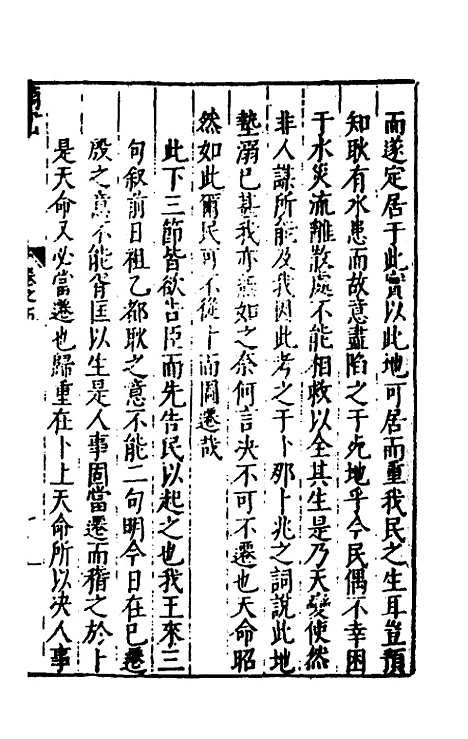 而遂定居于此實以此地可居而重我民之生耳豈預
知耿有水患而故意盡陷之于死地乎今民偶不幸困
于水災流離散處不能相救以全其生是乃天變使然
非人謀所能及我因此考之于卜那卜兆之詞說此地
墊溺已甚我亦無如之奈何言决不可不遷也天命昭
然如此爾民可不從卜而圖遷哉
此下三節皆欲告臣而先告民以起之也我王來三
句叙前日祖乙都耿之意不能二句明今日在巳遷
殷之意不能胥匡以生是人事固當遷而稽之於卜
是天命又必當遷也歸重在卜上天命所以决人事
卷之五